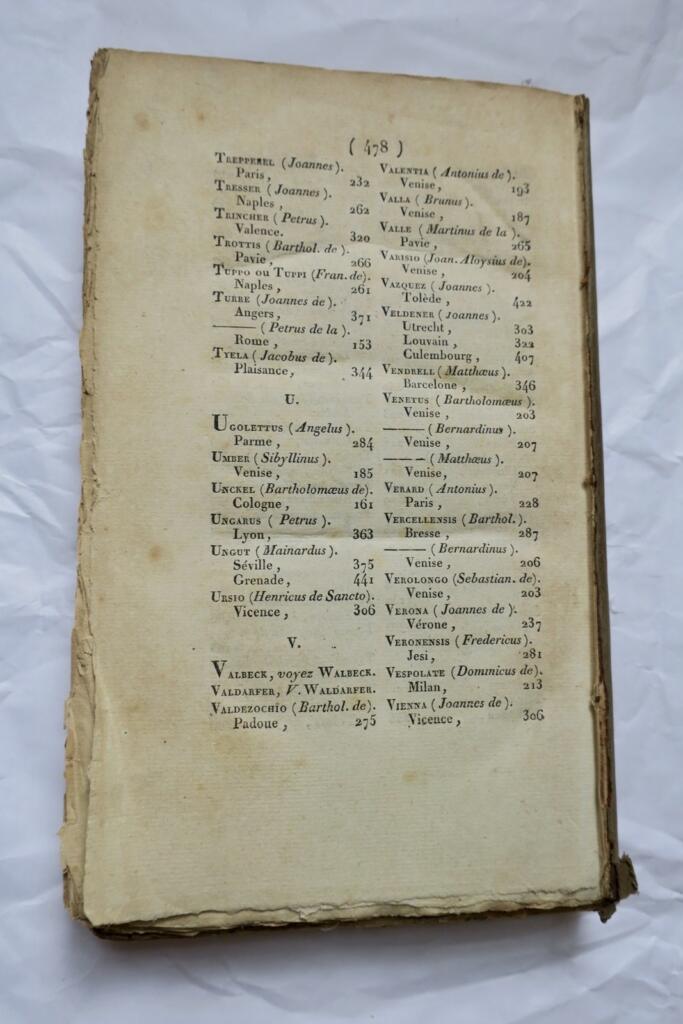 ( 478 )
TREPPEREL (Joannes).
Paris, 232
TRESSER (Joannes).
Naples, 262
TRINCHER (Petrus).
Valence. 320
TROTTIS (Barthol. de).
Pavie, 266
TUPPO ou TUPPI (Fran. de).
Naples, 261
TURRE (Joannes de).
Angers, 371
——— (Petrus de la).
Rome, 153
TYELA (Jacobus de).
Plaisance, 344
U.
UGOLETTUS (Angelus).
Parme, 284
UMBER (Sibyllinus).
Venise, 185
UNCKEL (Bartholomæus de).
Cologne, 161
UNGARUS (Petrus).
Lyon, 363
UNGUT (Mainardus).
Séville, 375
Grenade, 441
URSIO (Henricus de Sancto).
Vicence, 306
V.
VALBECK, voyez WALBECK.
VALDARFER, V. WALDARFER.
VALDEZOCHIO (Barthol. de).
Padoue, 275
VALENTIA (Antonius de).
Venise, 193
VALLA (Brunus).
Venise, 187
VALLE (Martinus de la).
Pavie, 265
VARISIO (Joan. Aloysius de).
Venise, 204
VAZQUEZ (Joannes).
Tolède, 422
VELDENER (Joannes).
Utrecht, 303
Louvain, 322
Culembourg, 407
VENDRELL (Matthæus).
Barcelone, 346
VENETUS (Bartholomæus).
Venise, 203
——— (Bernardinus).
Venise, 207
——— (Matthæus).
Venise, 207
VERARD (Antonius).
Paris, 228
VERCELLENSIS (Barthol.).
Bresse, 287
——— (Bernardinus).
Venise, 206
VEROLONGO (Sebastian. de).
Venise, 203
VERONA (Joannes de).
Vérone, 237
VERONENSIS (Fredericus).
Jesi, 281
VESPOLATE (Dominicus de).
Milan, 213
VIENNA (Joannes de).
Vicence, 306